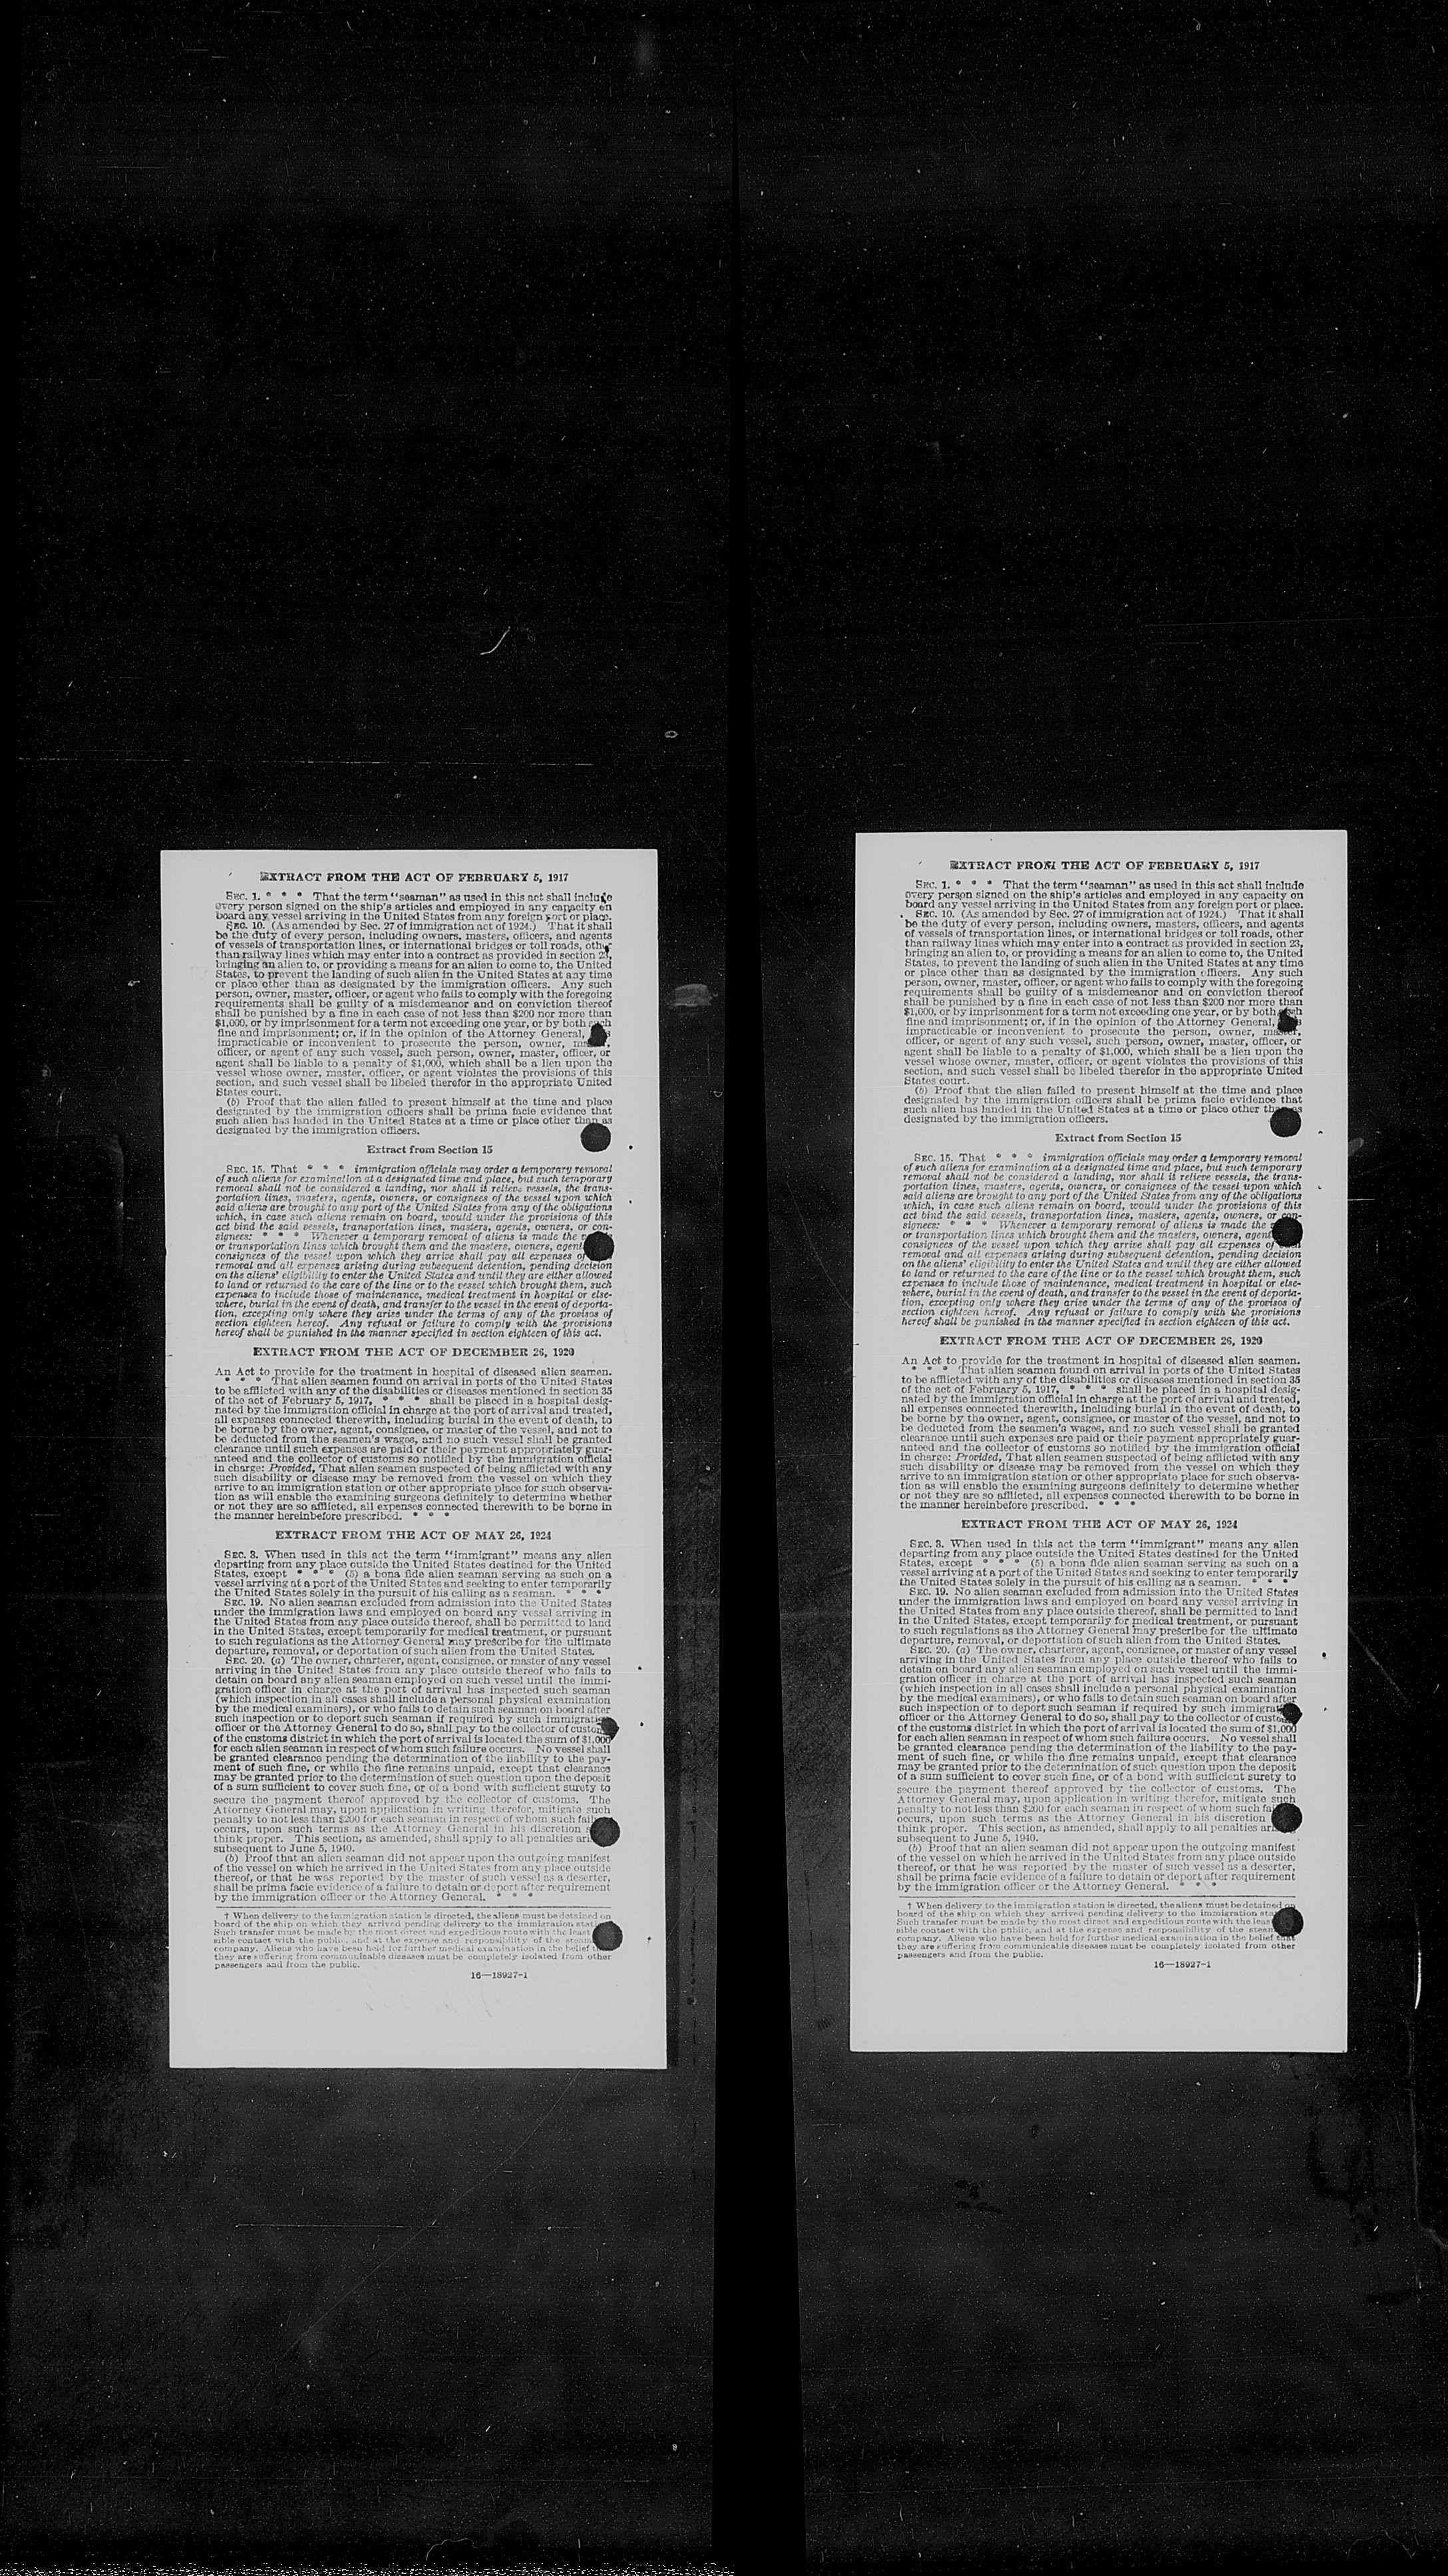 EXTRACT FROM THE ACT OF FEBRUARY 5, 1917
SEC. 1. * * * That the term "seaman" as used in this act shall include
every person signed on the ship's articles and employed in any capacity on
board any vessel arriving in the United States from any foreign port or place.
SEC. 10. (As amended by Sec. 27 of immigration act of 1924.) That it shall
be the duty of every person, including owners, masters, officers, and agents
of vessels of transportation lines, or international bridges or toll roads, other
than railway lines which may enter into a contract as provided in section 23,
bringing an alien to, or providing a means for an alien to come to, the United
States, to prevent the landing of such alien in the United States at any time
or place other than as designated by the immigration officers. Any such
person, owner, master, officer, or agent who fails to comply with the foregoing
requirements shall be guilty of a misdemeanor and on conviction thereof
shall be punished by a fine in each case of not less than $200 nor more than
$1,000, or by imprisonment for a term not exceeding one year, or by both such
fine and imprisonment; or, if in the opinion of the Attorney General,
impracticable or inconvenient to prosecute the person, owner, master,
officer, or agent of any such vessel, such person, owner, master, officer, or
agent shall be liable to a penalty of $1,000, which shall be a lien upon the
vessel whose owner, master, officer, or agent violates the provisions of this
section, and such vessel shall be libeled therefor in the appropriate United
States court.
(b) Proof that the alien failed to present himself at the time and place
designated by the immigration officers shall be prima facie evidence that
such alien has landed in the United States at a time or place other than as
designated by the immigration officers.
Extract from Section 15
SEC. 15. That * * * immigration officials may order a temporary removal
of such aliens for examination at a designated time and place, but such temporary
removal shall not be considered a landing, nor shall it relieve vessels, the trans-
portation lines, masters, agents, owners, or consignees of the vessel upon which
said aliens are brought to any port of the United States from any of the obligations
which, in case such aliens remain on board, would under the provisions of this
act bind the said vessels, transportation lines, masters, agents, owners, or con-
signees: * * * Whenever a temporary removal of aliens is made the
or transportation lines which brought them and the masters, owners, agent
consignees of the vessel upon which they arrive shall pay all expenses of
removal and all expenses arising during subsequent detention, pending decision
on the aliens' eligibility to enter the United States and until they are either allowed
to land or returned to the care of the line or to the vessel which brought them, such
expenses to include those of maintenance, medical treatment in hospital or else-
where, burial in the event of death, and transfer to the vessel in the event of deporta-
tion, excepting only where they arise under the terms of any of the provisos of
section eighteen hereof. Any refusal or failure to comply with the provisions
hereof shall be punished in the manner specified in section eighteen of this act.
EXTRACT FROM THE ACT OF DECEMBER 26, 1920
An Act to provide for the treatment in hospital of diseased alien seamen.
* * * That alien seamen found on arrival in ports of the United States
to be afflicted with any of the disabilities or diseases mentioned in section 35
of the act of February 5, 1917, * * * shall be placed in a hospital desig-
nated by the immigration official in charge at the port of arrival and treated,
all expenses connected therewith, including burial in the event of death, to
be borne by the owner, agent, consignee, or master of the vessel, and not to
be deducted from the seamen's wages, and no such vessel shall be granted
clearance until such expenses are paid or their payment appropriately guar-
anteed and the collector of customs so notified by the immigration official
in charge: Provided, That alien seamen suspected of being afflicted with any
such disability or disease may be removed from the vessel on which they
arrive to an immigration station or other appropriate place for such observa-
tion as will enable the examining surgeons definitely to determine whether
or not they are so afflicted, all expenses connected therewith to be borne in
the manner hereinbefore prescribed. * * *
EXTRACT FROM THE ACT OF MAY 26, 1924
SEC. 3. When used in this act the term "immigrant" means any alien
departing from any place outside the United States destined for the United
States, except * * * (5) a bona fide alien seaman serving as such on a
vessel arriving at a port of the United States and seeking to enter temporarily
the United States solely in the pursuit of his calling as a seaman. * * *
SEC. 19. No alien seaman excluded from admission into the United States
under the immigration laws and employed on board any vessel arriving in
the United States from any place outside thereof, shall be permitted to land
in the United States, except temporarily for medical treatment, or pursuant
to such regulations as the Attorney General may prescribe for the ultimate
departure, removal, or deportation of such alien from the United States.
SEC. 20. (a) The owner, charterer, agent, consignee, or master of any vessel
arriving in the United States from any place outside thereof who fails to
detain on board any alien seaman employed on such vessel until the immi-
gration officer in charge at the port of arrival has inspected such seaman
(which inspection in all cases shall include a personal physical examination
by the medical examiners), or who fails to detain such seaman on board after
such inspection or to deport such seaman if required by such immigration
officer or the Attorney General to do so, shall pay to the collector of customs
of the customs district in which the port of arrival is located the sum of $1,000
for each alien seaman in respect of whom such failure occurs. No vessel shall
be granted clearance pending the determination of the liability to the pay-
ment of such fine, or while the fine remains unpaid, except that clearance
may be granted prior to the determination of such question upon the deposit
of a sum sufficient to cover such fine, or of a bond with sufficient surety to
secure the payment thereof approved by the collector of customs. The
Attorney General may, upon application in writing therefor, mitigate such
penalty to not less than $200 for each seaman in respect of whom such fail
occurs, upon such terms as the Attorney General in his discretion
think proper. This section, as amended, shall apply to all penalties ari
subsequent to June 5, 1940.
(b) Proof that an alien seaman did not appear upon the outgoing manifest
of the vessel on which he arrived in the United States from any place outside
thereof, or that he was reported by the master of such vessel as a deserter,
shall be prima facie evidence of a failure to detain or deport after requirement
by the immigration officer or the Attorney General. * * *
† When delivery to the immigration station is directed, the aliens must be detained on
board of the ship on which they arrived pending delivery to the immigration stat
Such transfer must be made by the most direct and expeditious route with the least
sible contact with the public, and at the expense and responsibility of the steam
company. Aliens who have been held for further medical examination in the belief that
they are suffering from communicable diseases must be completely isolated from other
passengers and from the public.
16—18927-1
EXTRACT FROM THE ACT OF FEBRUARY 5, 1917
SEC. 1. * * * That the term "seaman" as used in this act shall include
every person signed on the ship's articles and employed in any capacity on
board any vessel arriving in the United States from any foreign port or place.
SEC. 10. (As amended by Sec. 27 of immigration act of 1924.) That it shall
be the duty of every person, including owners, masters, officers, and agents
of vessels of transportation lines, or international bridges or toll roads, other
than railway lines which may enter into a contract as provided in section 23,
bringing an alien to, or providing a means for an alien to come to, the United
States, to prevent the landing of such alien in the United States at any time
or place other than as designated by the immigration officers. Any such
person, owner, master, officer, or agent who fails to comply with the foregoing
requirements shall be guilty of a misdemeanor and on conviction thereof
shall be punished by a fine in each case of not less than $200 nor more than
$1,000, or by imprisonment for a term not exceeding one year, or by both such
fine and imprisonment; or, if in the opinion of the Attorney General,
impracticable or inconvenient to prosecute the person, owner, master,
officer, or agent of any such vessel, such person, owner, master, officer, or
agent shall be liable to a penalty of $1,000, which shall be a lien upon the
vessel whose owner, master, officer, or agent violates the provisions of this
section, and such vessel shall be libeled therefor in the appropriate United
States court.
(b) Proof that the alien failed to present himself at the time and place
designated by the immigration officers shall be prima facie evidence that
such alien has landed in the United States at a time or place other than as
designated by the immigration officers.
Extract from Section 15
SEC. 15. That * * * immigration officials may order a temporary removal
of such aliens for examination at a designated time and place, but such temporary
removal shall not be considered a landing, nor shall it relieve vessels, the trans-
portation lines, masters, agents, owners, or consignees of the vessel upon which
said aliens are brought to any port of the United States from any of the obligations
which, in case such aliens remain on board, would under the provisions of this
act bind the said vessels, transportation lines, masters, agents, owners, or con-
signees: * * * Whenever a temporary removal of aliens is made the
or transportation lines which brought them and the masters, owners, agent
consignees of the vessel upon which they arrive shall pay all expenses of
removal and all expenses arising during subsequent detention, pending decision
on the aliens' eligibility to enter the United States and until they are either allowed
to land or returned to the care of the line or to the vessel which brought them, such
expenses to include those of maintenance, medical treatment in hospital or else-
where, burial in the event of death, and transfer to the vessel in the event of deporta-
tion, excepting only where they arise under the terms of any of the provisos of
section eighteen hereof. Any refusal or failure to comply with the provisions
hereof shall be punished in the manner specified in section eighteen of this act.
EXTRACT FROM THE ACT OF DECEMBER 26, 1920
An Act to provide for the treatment in hospital of diseased alien seamen.
* * * That alien seamen found on arrival in ports of the United States
to be afflicted with any of the disabilities or diseases mentioned in section 35
of the act of February 5, 1917, * * * shall be placed in a hospital desig-
nated by the immigration official in charge at the port of arrival and treated,
all expenses connected therewith, including burial in the event of death, to
be borne by the owner, agent, consignee, or master of the vessel, and not to
be deducted from the seamen's wages, and no such vessel shall be granted
clearance until such expenses are paid or their payment appropriately guar-
anteed and the collector of customs so notified by the immigration official
in charge: Provided, That alien seamen suspected of being afflicted with any
such disability or disease may be removed from the vessel on which they
arrive to an immigration station or other appropriate place for such observa-
tion as will enable the examining surgeons definitely to determine whether
or not they are so afflicted, all expenses connected therewith to be borne in
the manner hereinbefore prescribed. * * *
EXTRACT FROM THE ACT OF MAY 26, 1924
SEC. 3. When used in this act the term "immigrant" means any alien
departing from any place outside the United States destined for the United
States, except * * * (5) a bona fide alien seaman serving as such on a
vessel arriving at a port of the United States and seeking to enter temporarily
the United States solely in the pursuit of his calling as a seaman. * * *
SEC. 19. No alien seaman excluded from admission into the United States
under the immigration laws and employed on board any vessel arriving in
the United States from any place outside thereof, shall be permitted to land
in the United States, except temporarily for medical treatment, or pursuant
to such regulations as the Attorney General may prescribe for the ultimate
departure, removal, or deportation of such alien from the United States.
SEC. 20. (a) The owner, charterer, agent, consignee, or master of any vessel
arriving in the United States from any place outside thereof who fails to
detain on board any alien seaman employed on such vessel until the immi-
gration officer in charge at the port of arrival has inspected such seaman
(which inspection in all cases shall include a personal physical examination
by the medical examiners), or who fails to detain such seaman on board after
such inspection or to deport such seaman if required by such immigration
officer or the Attorney General to do so, shall pay to the collector of customs
of the customs district in which the port of arrival is located the sum of $1,000
for each alien seaman in respect of whom such failure occurs. No vessel shall
be granted clearance pending the determination of the liability to the pay-
ment of such fine, or while the fine remains unpaid, except that clearance
may be granted prior to the determination of such question upon the deposit
of a sum sufficient to cover such fine, or of a bond with sufficient surety to
secure the payment thereof approved by the collector of customs. The
Attorney General may, upon application in writing therefor, mitigate such
penalty to not less than $200 for each seaman in respect of whom such fai
occurs, upon such terms as the Attorney General in his discretion
think proper. This section, as amended, shall apply to all penalties ari
subsequent to June 5, 1940.
(b) Proof that an alien seaman did not appear upon the outgoing manifest
of the vessel on which he arrived in the United States from any place outside
thereof, or that he was reported by the master of such vessel as a deserter,
shall be prima facie evidence of a failure to detain or deport after requirement
by the immigration officer or the Attorney General. * * *
† When delivery to the immigration station is directed, the aliens must be detained on
board of the ship on which they arrived pending delivery to the immigration sta
Such transfer must be made by the most direct and expeditious route with the leas
sible contact with the public, and at the expense and responsibility of the steam
company. Aliens who have been held for further medical examination in the belief that
they are suffering from communicable diseases must be completely isolated from other
passengers and from the public.
16—18927-1